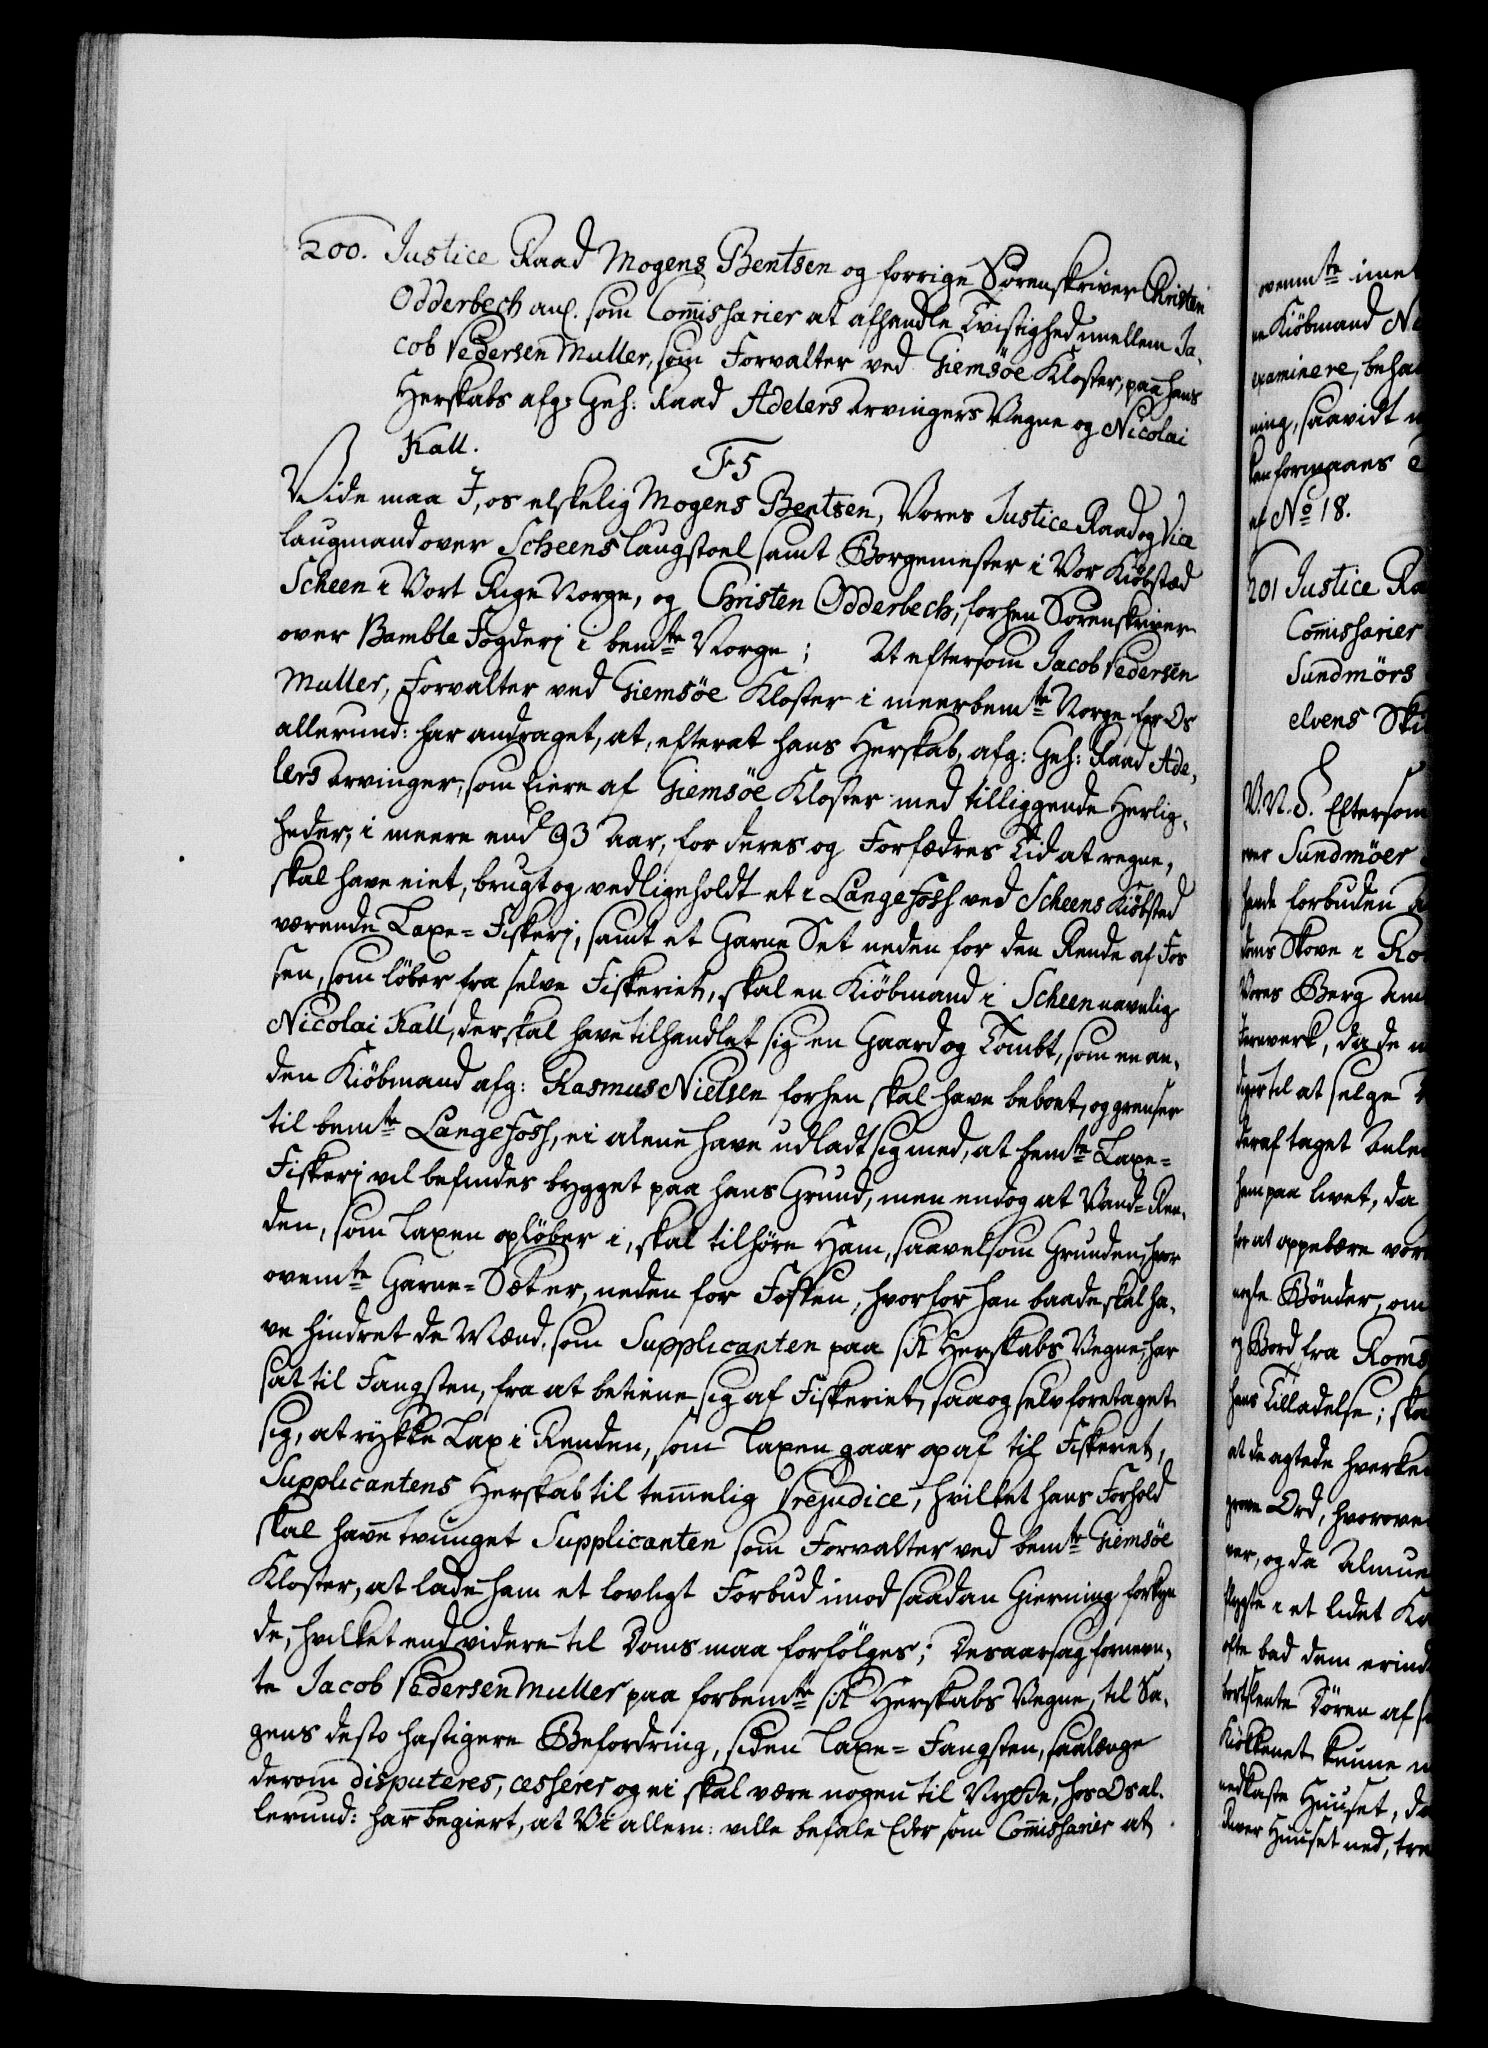 200. Justice Raad Mogens Bentsen og forrige Sorenskriver Christen
Odderbech anl. som Commissarier at afhandle Tvistighed imellem Ja-
cob Pedersen Muller, som Forvalter ved Giemsöe Kloster, paa hans
Herskabs afg: Geh: Raad Adelers Arvingers Vegne og Nicolai
Kall.
F5
Vide maa I, os elskelig Mogens Bentsen, Vores Justice Raad og Vice
laugmand over Scheens laugstoel samt Borgemester i Vor Kiöbstæd
Scheen i Vort Rige Norge, og Christen Odderbech, forhen Sorenskriver
over Bamble Fogderj i bemte Norge; At eftersom Jacob Pedersen
Muller, Forvalter ved Giemsöe Kloster i meerbemte Norge for Os
allerund: har andraget, at, efterat hans Herskab, afg: Geh: Raad Ade-
lers Arvinger, som Eiere af Giemsöe Kloster med tilliggende Herlig-
heder, i meere end 93 Aar, for deres og Forfædres Tid at regne,
skal have eiet, brugt og vedligeholdt et i Lange Foss ved Scheens Kiöbsted
værende Laxe-Fiskerj, samt et Garne Set neden for den Rende af Fos
sen, som löber fra selve Fiskeriet, skal en Kiöbmand i Scheen navnlig
Nicolai Kall, der skal have tilhandlet sig en Gaard og Tombt, som en an-
den Kiöbmand afg: Rasmus Nielsen forhen skal have beboet, og grenser
til bemte Lange Foss, ei alene have udladt sig med, at bemte Laxe-
Fiskerj vil befindes bygget paa hans Grund, men endog at Vand-Ren-
den, som Laxen oplöber i, skal tilhöre Ham, saavelsom Grunden, hvor
ovemte Garne-Sæt er, neden for Fossen, hvorfor han baade skal ha-
ve hindret de Mænd, som Supplicanten paa sit Herskabs Vegne, har
sat til Fangsten, fra at betiene sig af Fiskeriet, saa og selv foretaget
sig, at rykke Lax i Renden, som Laxen gaar op af til Fiskeriet,
Supplicantens Herskab til temmelig Prejudice, hvilket hans Forhold
skal have tvunget Supplicanten som Forvalter ved bemte Giemsöe
Kloster, at lade ham et lovligt Forbud imod saadan Gierning forkyn
de, hvilket end videre til Doms maa forfölges; Desaarsag fornevn-
te Jacob Pedersen Muller paa forbemte sit Herskabs Vegne, til Sa-
gens desto hastigere Befordring, siden Laxe-Fangsten, saalænge
derom disputeres, cesserer og ei skal være nogen til Nytte, hos Os al-
lerund: har begiert, at Vi allern: ville befale Eder som Commissarier at
ovenmte imel
ne Kiöbmand N
examinere, beha
ning, saavidt
formaaes
af No 18.
201 Justice Ra
Commissarier
Sundmörs
elvens Ski
V. N. S. Eftersom
Sundmöer
forbuden
Skove i Ro
Vores Berg Am
da de
til at selge
deraf taget Anle
ham paa livet, da
for at oppebære
nogle Bönder, om
og Bord fra Roms
hans Tilladelse; ska
at de agtede hverken
grove Ord, hvorove
ner, og da Almue
i et lidet Ka
ofte bad dem erind
Dören af
Kiökkenet kunne
nedkaste Huuset, da
Huuset ned, tre